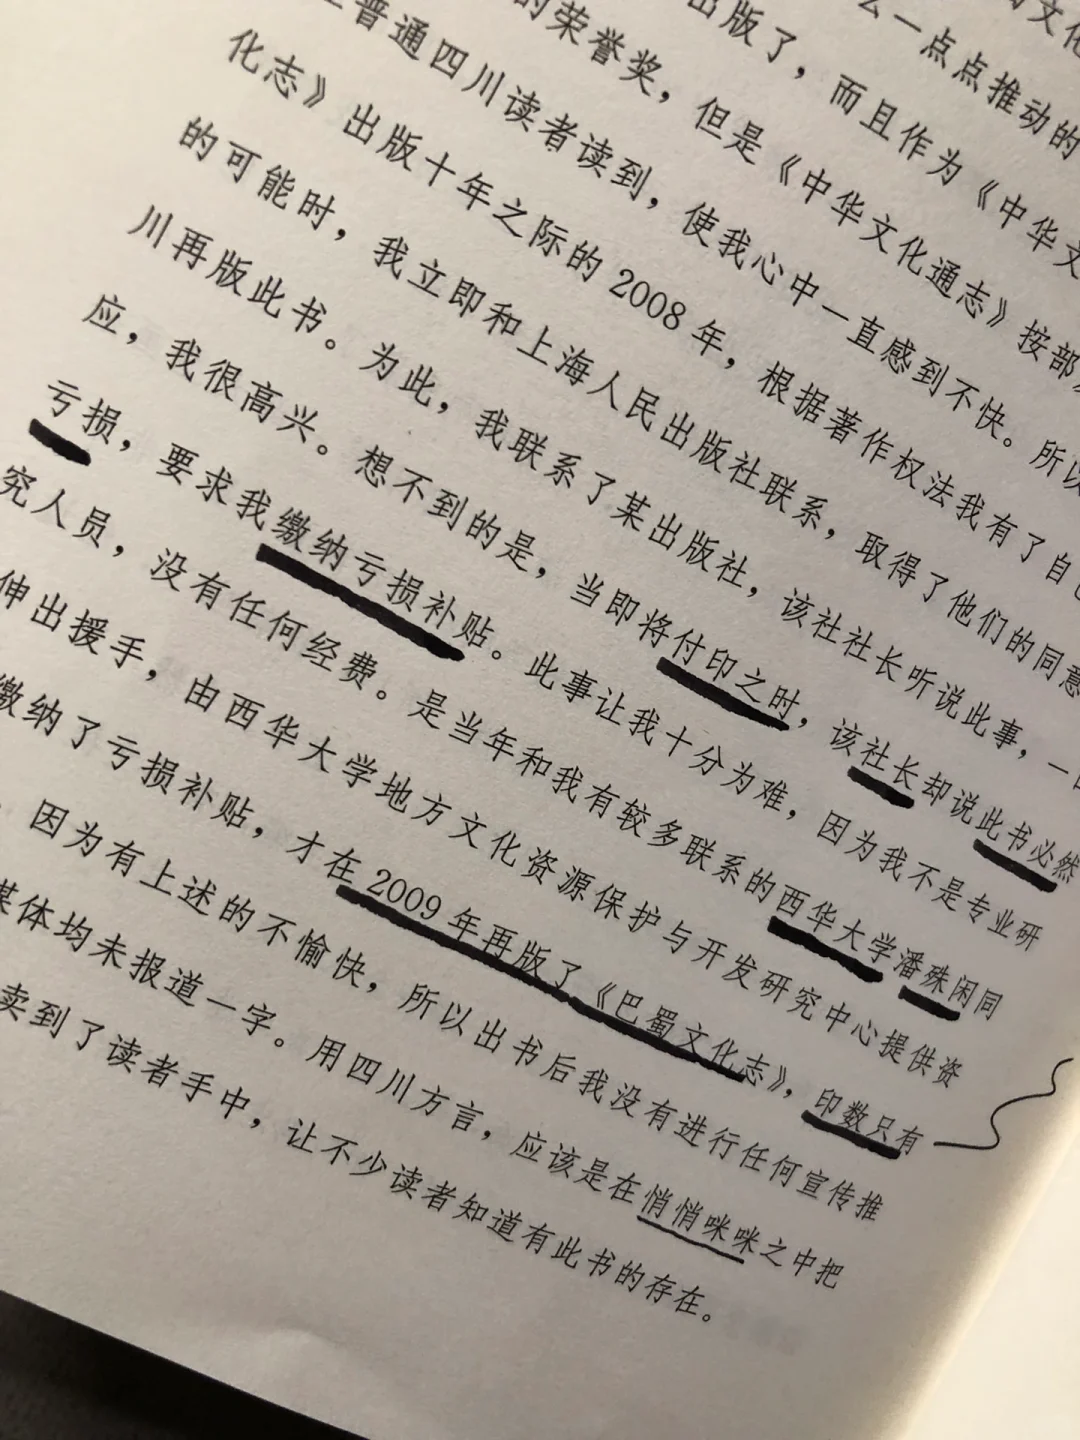 蜀文化
出版了，而且作为《中华文
么一点点推动的
的荣誉奖，但是《中华文化通志》按部
普通四川读者读到，使我心中一直感到不快。所以
化志》出版十年之际的 2008 年，根据著作权法我有了自己
的可能时，我立即和上海人民出版社联系，取得了他们的同意
川再版此书。为此，我联系了某出版社，该社社长听说此事，一
应，我很高兴。想不到的是，当即将付印之时，该社长却说此书必然
亏损，要求我缴纳亏损补贴。此事让我十分为难，因为我不是专业研
究人员，没有任何经费。是当年和我有较多联系的西华大学潘殊闲同
伸出援手，由西华大学地方文化资源保护与开发研究中心提供资
缴纳了亏损补贴，才在 2009 年再版了《巴蜀文化志》，印数只有
因为有上述的不愉快，所以出书后我没有进行任何宣传推
媒体均未报道一字。用四川方言，应该是在悄悄咪咪之中把
卖到了读者手中，让不少读者知道有此书的存在。